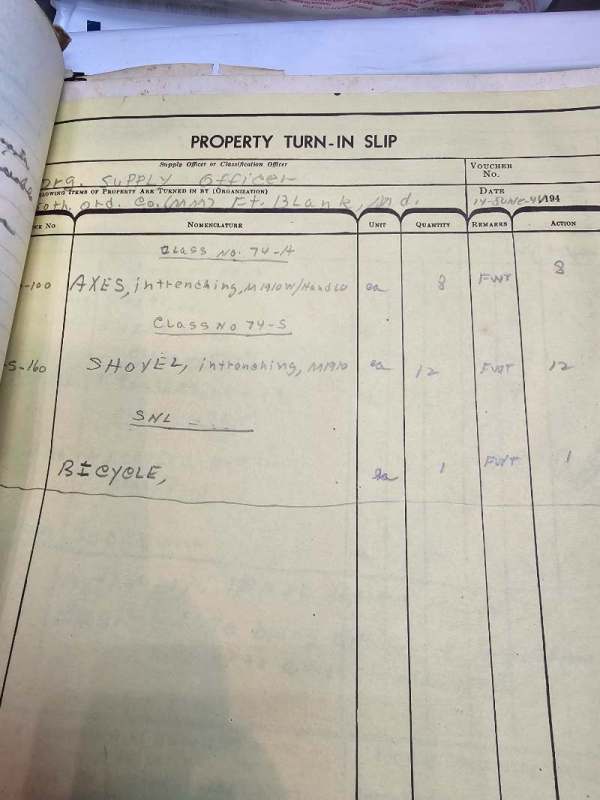 PROPERTY TURN-IN SLIP
Supply Officer or Classification Officer
VOUCHER No.
org. SUPPLY Officer
LOWING ITEMS OF PROPERTY ARE TURNED IN BY (ORGANIZATION)
DATE
oth. Ord. Co. (MM) Ft. BLank, Md.
14-JUNE 194
CK NO NOMENCLATURE UNIT QUANTITY REMARKS ACTION
CLASS NO. 74-A
-100 AXES, intrenching, M1910 W/Handle ea 8 FWT 8
CLASS NO 74-S
S-160 SHOVEL, intrenching, M1910 ea 12 FWT 12
SNL
BICYCLE, ea 1 FWT 1